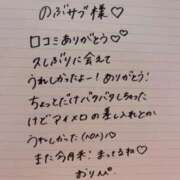 のぶサブ様♡
口コミありがとう♡
久しぶりに会えて
うれしかったよー！ありがとう！
ちょっとだけバタバタしちゃった
けどマイメロの差し入れとか
うれしかった(^o^)♡
また今月末！まってるね♡
おりんぴ